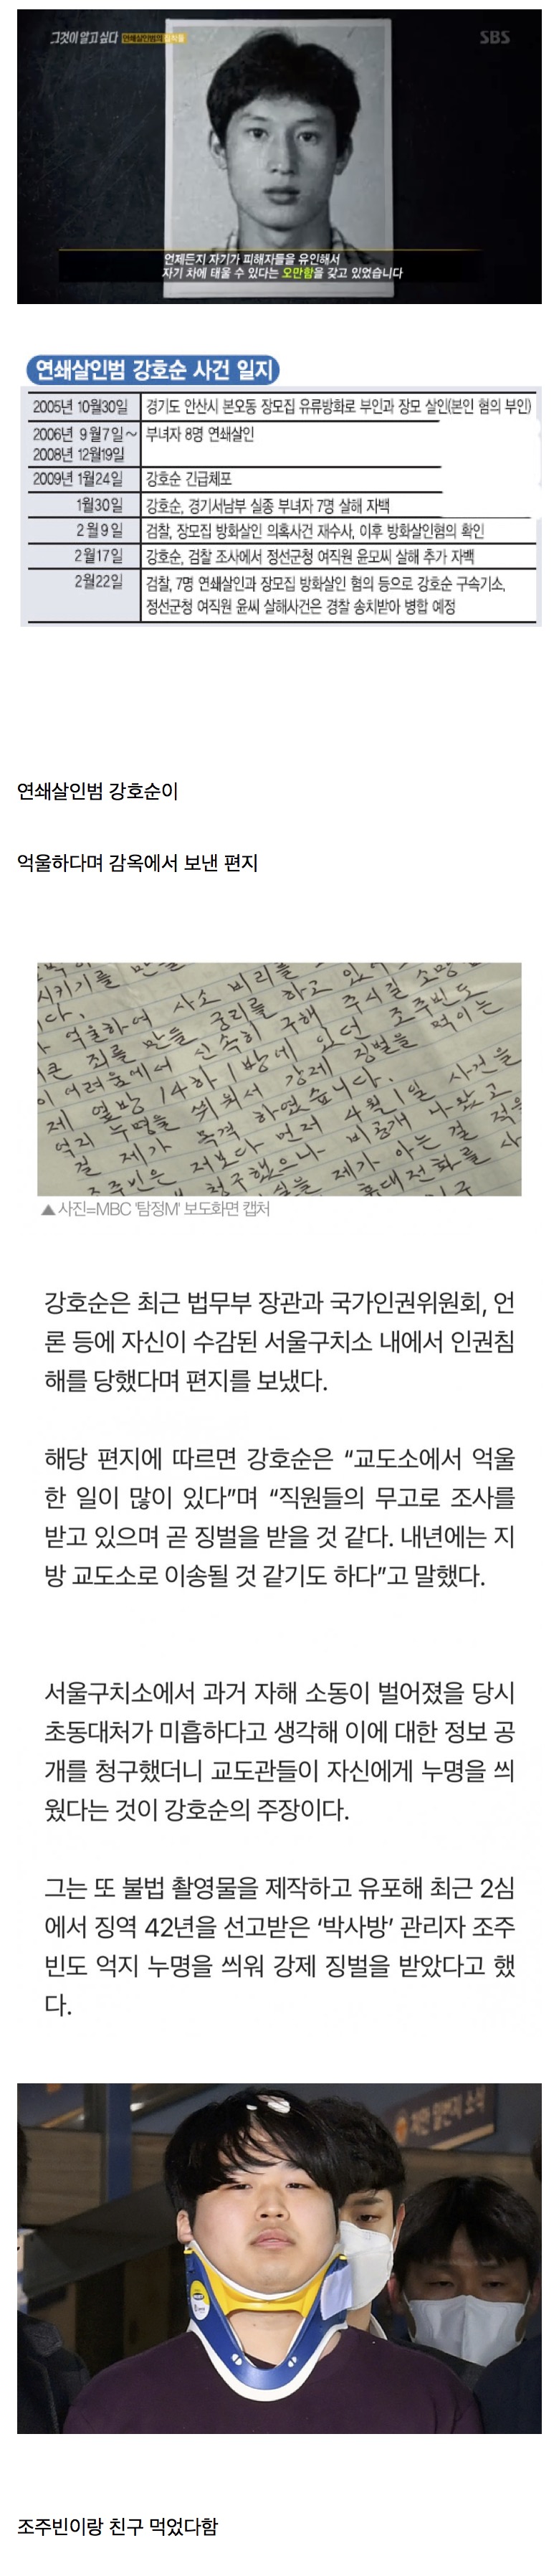 그것이 알고 싶다 연쇄살인범의
SBS
언제든지 자기가 피해자들을 유인해서
자기 차에 태울 수 있다는 오만함을 갖고 있었습니다
연쇄살인범 강호순 사건 일지
2005년 10월30일 경기도 안산시 본오동 장모집 유류방화로 부인과 장모 살인(본인 혐의 부인)
2006년 9월7일~ 부녀자 8명 연쇄살인
2008년 12월19일
2009년 1월24일 강호순 긴급체포
1월30일 강호순, 경기서남부 실종 부녀자 7명 살해 자백
2월9일 검찰, 장모집 방화살인 의혹사건 재수사, 이후 방화살인혐의 확인
2월17일 강호순, 검찰 조사에서 정선군청 여직원 윤모씨 살해 추가 자백
2월22일 검찰, 7명 연쇄살인과 장모집 방화살인 혐의 등으로 강호순 구속기소,
정선군청 여직원 윤씨 살해사건은 경찰 송치받아 병합 예정
연쇄살인범 강호순이
억울하다며 감옥에서 보낸 편지
시키기를 만들
다.
억울하여 사소 비리를
큰 죄를 만들 궁리를 하고 있
이 어려움에서 신속히 구해 주시길 소망
제 옆방 14하 1방에 있던 조주빈도
억지 누명을 씌워서 강제 징벌을 먹이는
걸 제가 목격 하였습니다.
조주빈은 저보다 먼저 4월 1일 사건을
청구했으나 비공개 나왔고
제가 아는 걸 적을
휴대전화를 사
▲ 사진=MBC '탐정M' 보도화면 캡처
강호순은 최근 법무부 장관과 국가인권위원회, 언
론 등에 자신이 수감된 서울구치소 내에서 인권침
해를 당했다며 편지를 보냈다.
해당 편지에 따르면 강호순은 “교도소에서 억울
한 일이 많이 있다”며 “직원들의 무고로 조사를
받고 있으며 곧 징벌을 받을 것 같다. 내년에는 지
방 교도소로 이송될 것 같기도 하다”고 말했다.
서울구치소에서 과거 자해 소동이 벌어졌을 당시
초동대처가 미흡하다고 생각해 이에 대한 정보 공
개를 청구했더니 교도관들이 자신에게 누명을 씌
웠다는 것이 강호순의 주장이다.
그는 또 불법 촬영물을 제작하고 유포해 최근 2심
에서 징역 42년을 선고받은 ‘박사방’ 관리자 조주
빈도 억지 누명을 씌워 강제 징벌을 받았다고 했
다.
조주빈이랑 친구 먹었다함